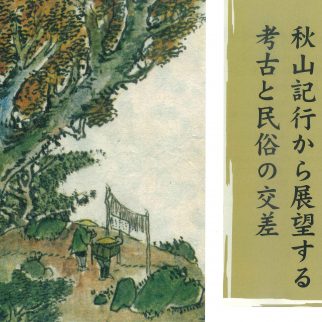 秋山記行から展望する
考古と民俗の交差